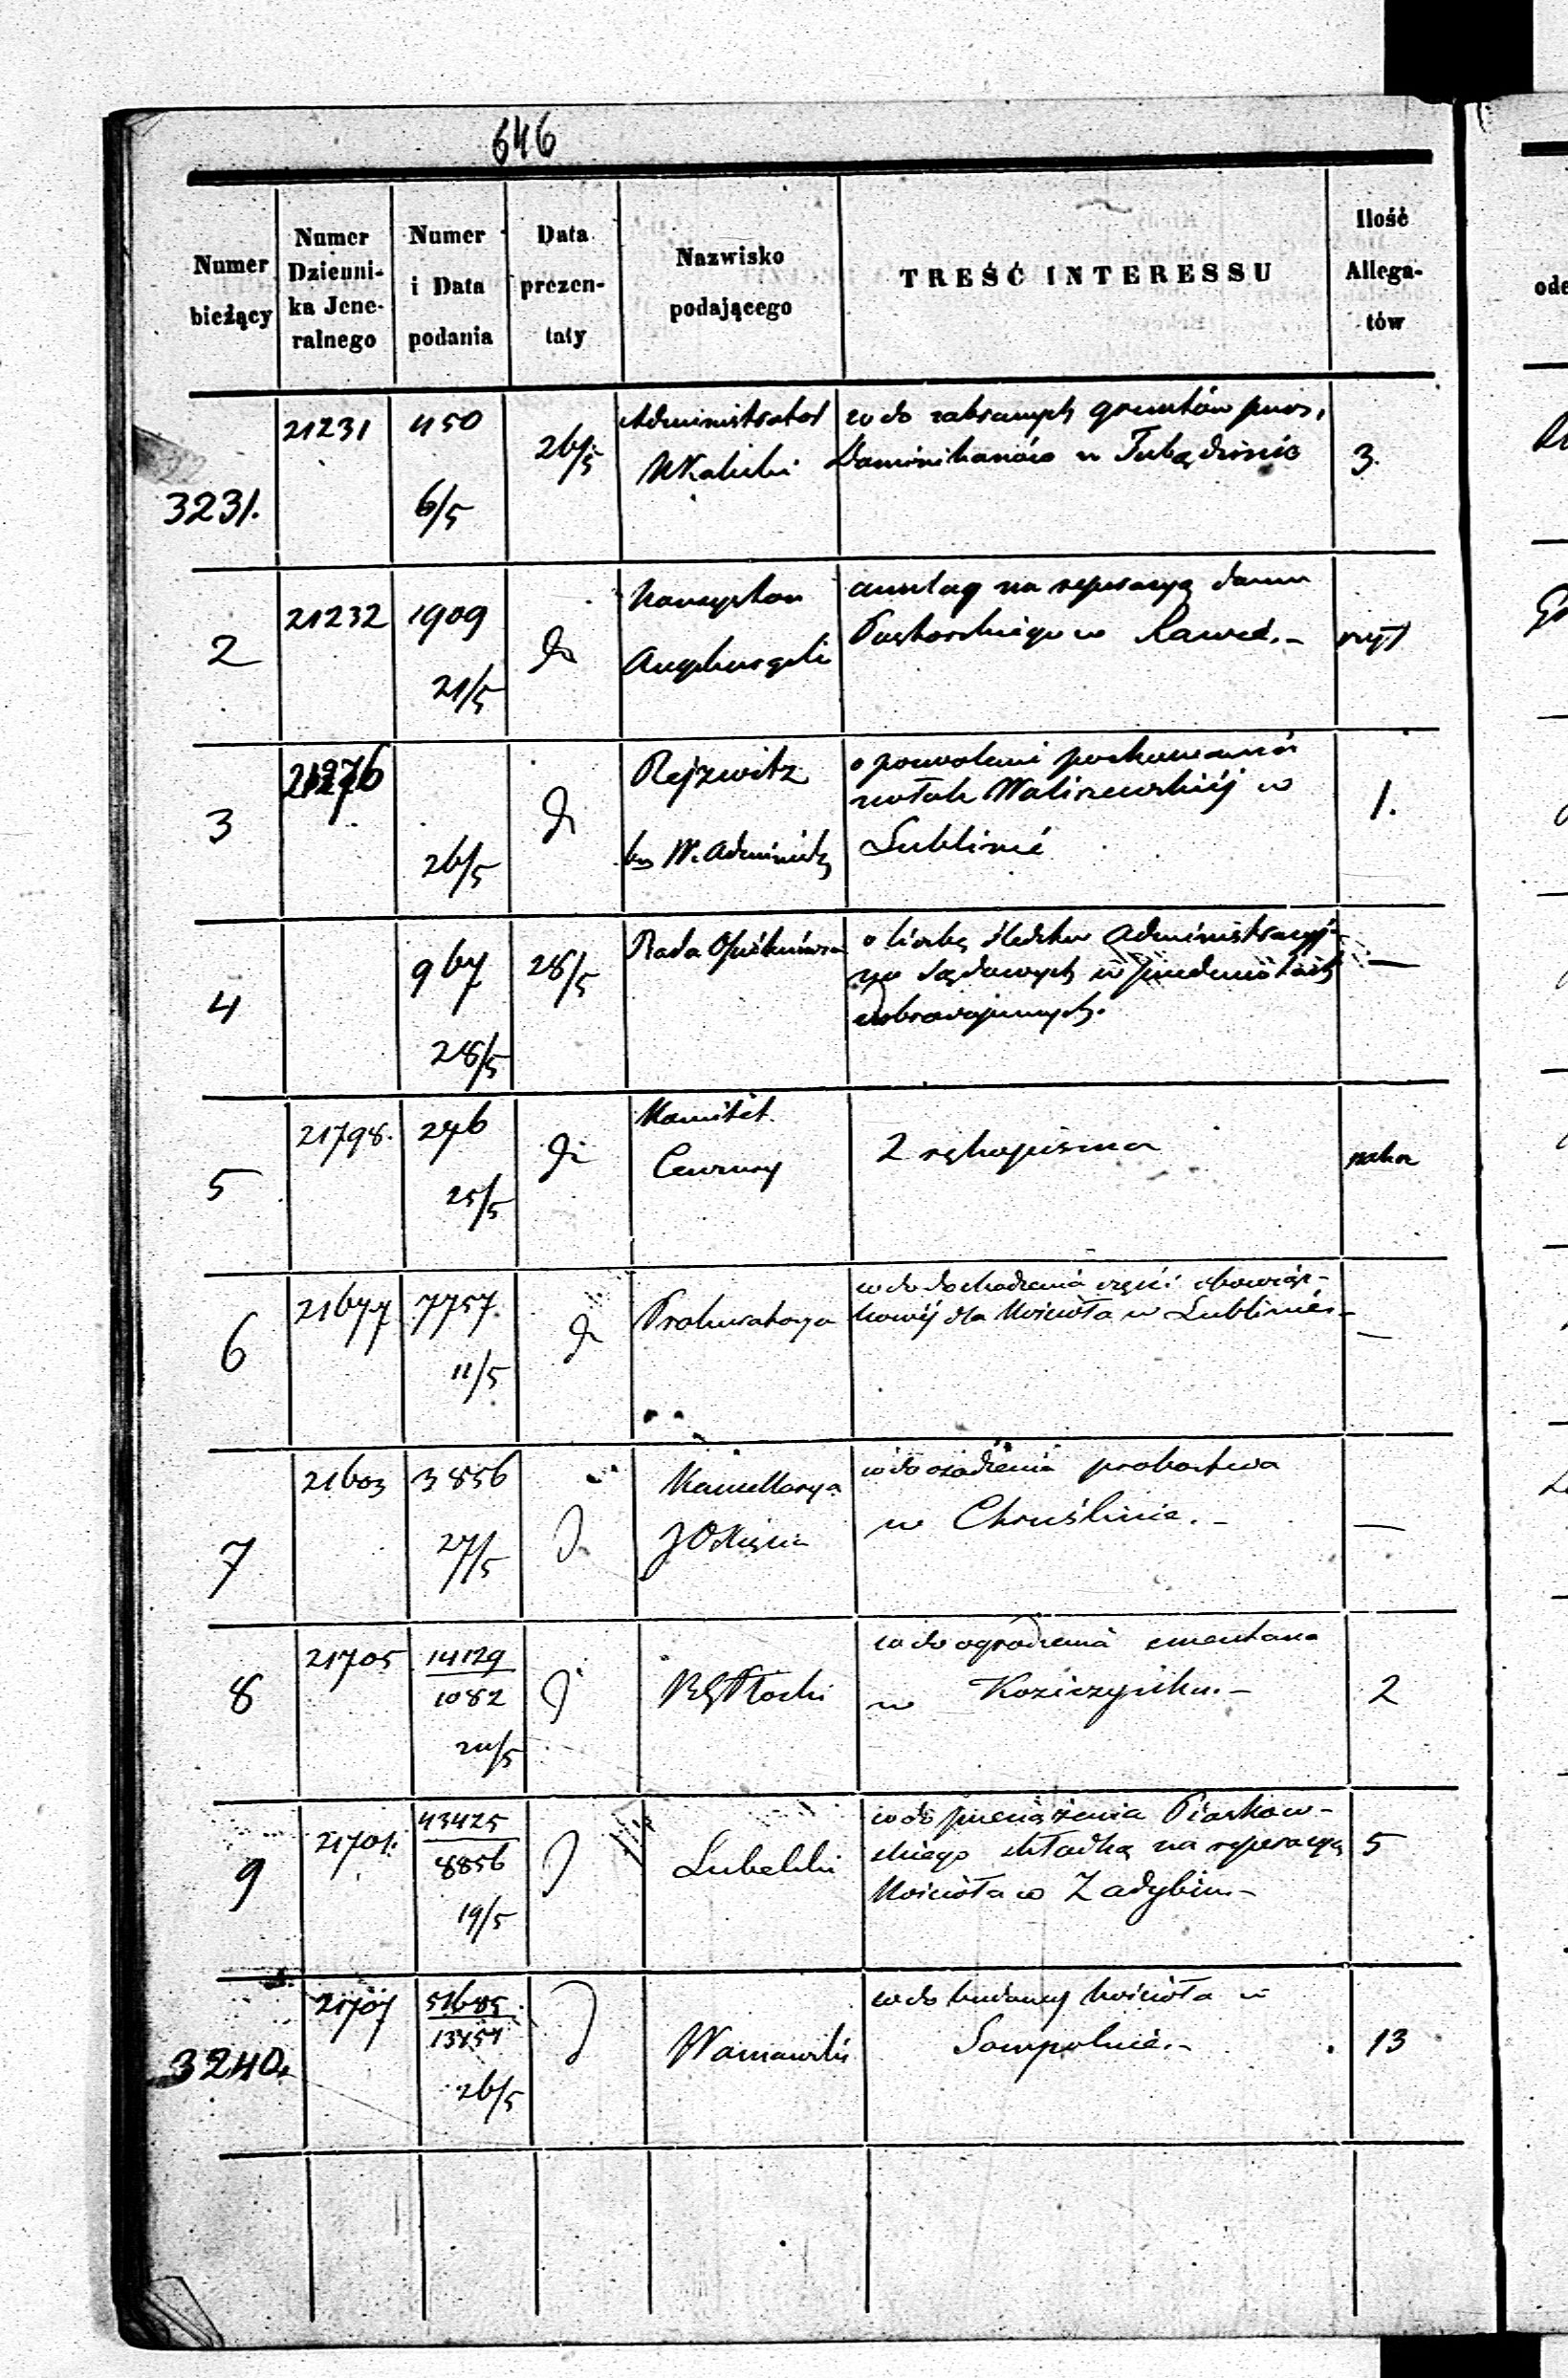 646
Numer bieżący
Numer Dzienni-ka Jene-ralnego
Numer i Data podania
Data prezen-taty
Nazwisko podającego
TREŚĆ INTERESSU
Ilość Allega-tów
3231. 21231 450 6/5 26/5
Administrator
WKaliski
co do zabranych gruntów przez
Dominikanów w Tubądzinie
3.
2 21232 1909 21/5 do
Konsystorz
Augsburgski
na reperacyą domu
Pastorskiego w Rawie.-
3 21276 26/5 do
Rejzwitz
o pozwoleni pochowania
zwłok Waliszewskiéj w
Lublinie
1.
4 967 28/5 28/5
Rada Opiekuńcza
o liczbę śledztw Administracyj-
no Sądowych w przedmiotach
—
5 21798. 246 25/5 do
Komitet
Cenzury
2 rękopisma
6 21677 7757. 11/5 do
Prokuratorya
co do dochodzenia części obowiąz-
kowéj dla Kościoła w Lublinie.-
—
7 21603 3856 27/5 do
Kancellarya
JOXięcia
co do osadzenia probostwa
w Chruślinie.-
—
8 21705 14129
1082
20/5 do
RGPłocki
co do ogrodzenia cmentarza
w Koziczynku.-
2
9 21701. 43425
8856
19/5
Lubelski
co do przeciążenia Piaskow-
skiego składką na reperacyą
Kościoła w Zadybiu.-
5
3240. 21707 51685
13757
26/5
Warszawski
co do budowy kościoła w
Sompolnie.-
13